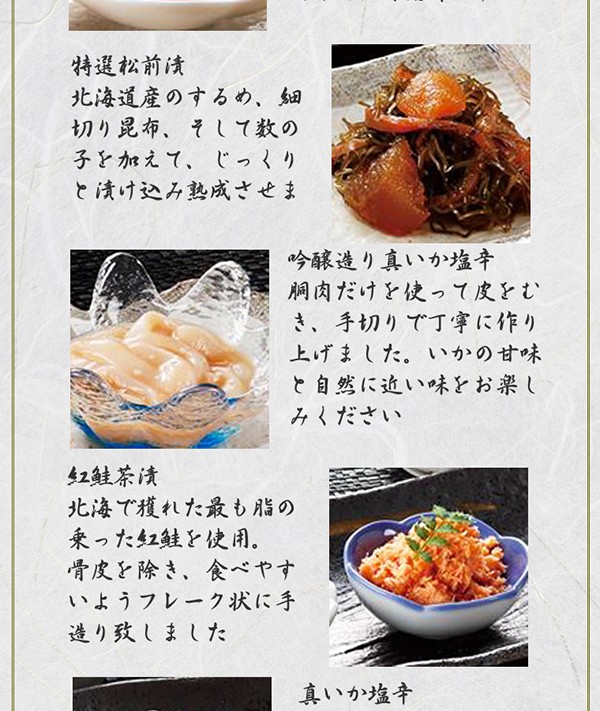 特選松前漬
北海道産のするめ、細
切り昆布、そして数の
子を加えて、じっくり
と漬け込み熟成させま
吟醸造り真いか塩辛
胴肉だけを使って皮をむ
き、手切りで丁寧に作り
上げました。いかの甘味
と自然に近い味をお楽し
みください
紅鮭茶漬
北海で獲れた最も脂の
乗った紅鮭を使用。
骨皮を除き、食べやす
いようフレーク状に手
造り致しました
真いか塩辛